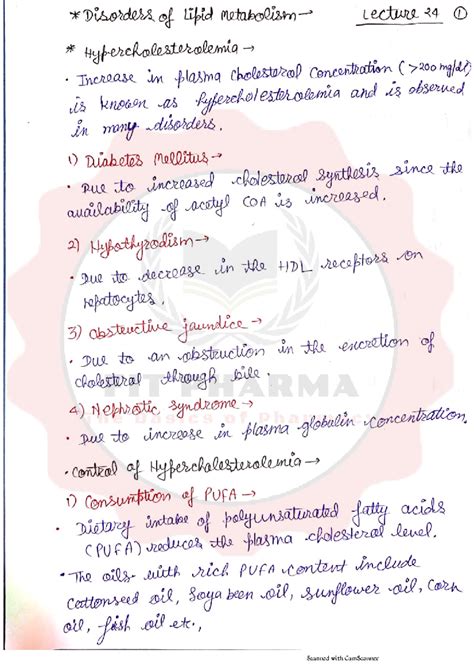 * Disorders of Lipid Metabolism → Lecture 24 ①
* Hypercholesterolemia →
• Increase in plasma cholesterol concentration (>200 mg/dl)
is known as hypercholesterolemia and is observed
in many disorders.
1) Diabetes Mellitus →
• Due to increased cholesterol synthesis since the
availability of acetyl COA is increased.
2) Hypothyrodism →
• Due to decrease in the HDL receptors on
hepatocytes.
3) Obstructive jaundice →
• Due to an obstruction in the excretion of
cholesterol through bile.
PHARMA
4) Nephrotic syndrome →
• Due to increase in plasma globulin concentration.
• Control of Hypercholesterolemia →
1) Consumption of PUFA →
• Dietary intake of polyunsaturated fatty acids
(PUFA) reduces the plasma cholesterol level.
• The oils with rich PUFA content include
Cottonseed oil, Soya been oil, sunflower oil, Corn
oil, fish oil etc.,
Scanned with CamScanner